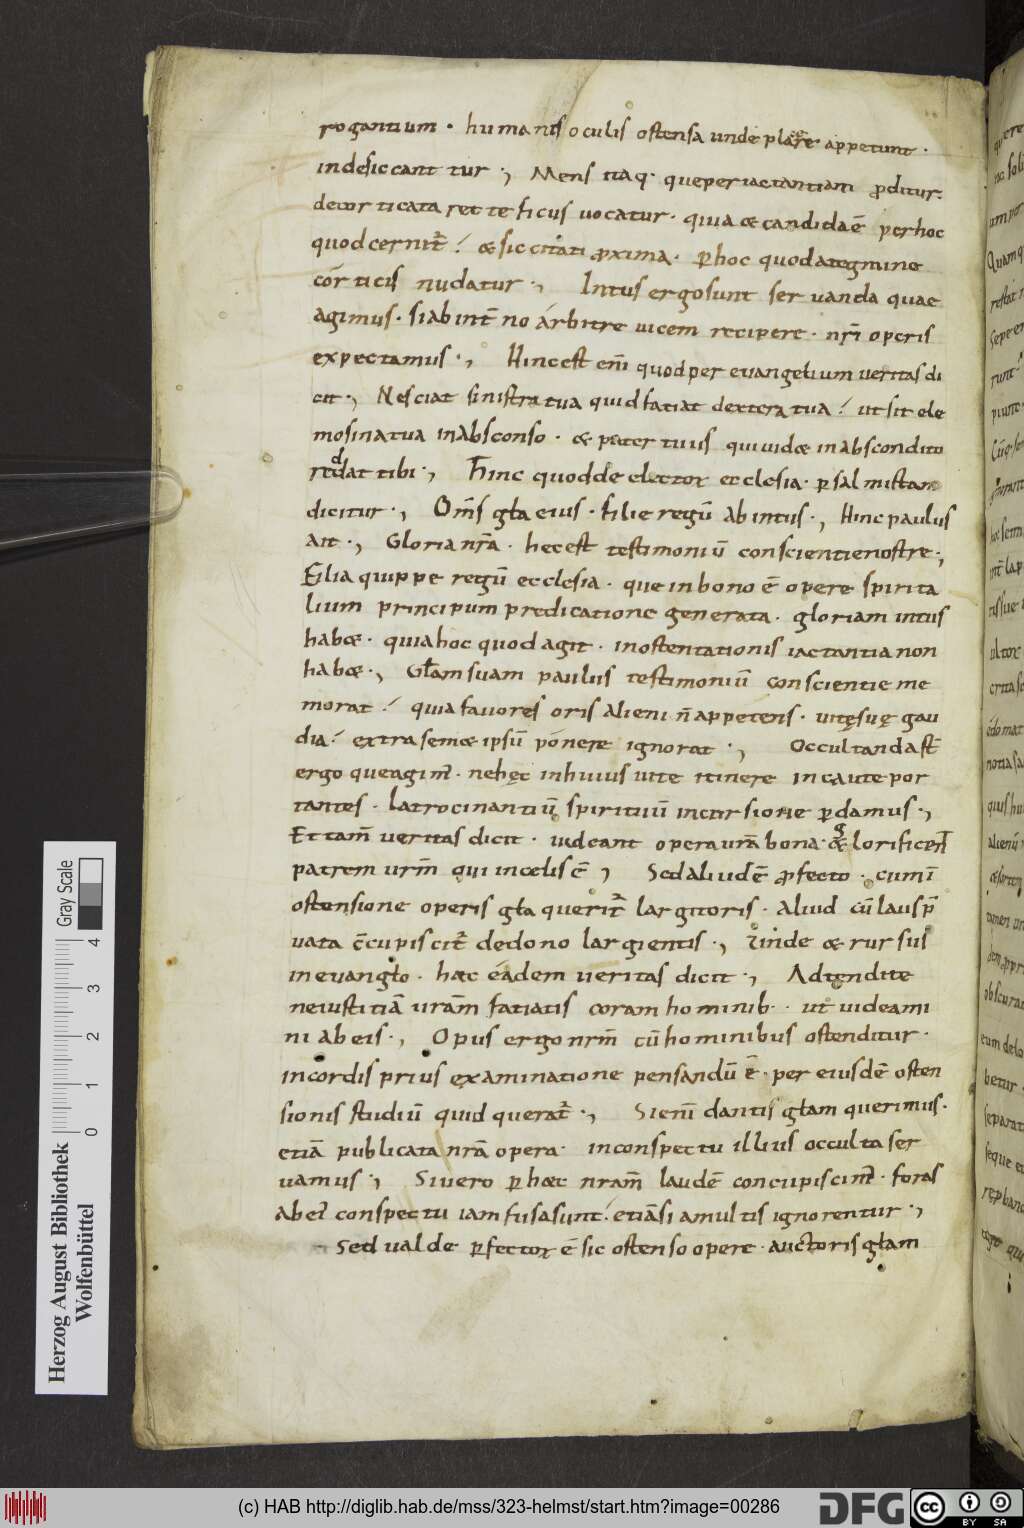 rogantium · humanis oculis ostensa unde placere appetunt ·
inde siccantur ·, Mens itaq· que per iactantiam ꝓditur·
decorticata recte ficus uocatur · quia & candida ē per hoc
quod cernitᷣ / & siccitati ꝓxima · ꝑ hoc quod a tegmine
corticis nudatur ·, Intus ergo sunt seruanda quae
agimus · si ab int̄no arbitre uicem recipere · nr̄i operis
expectamus ·, Hinc est eni̅ quod per euangelium ueritas di
cit ·, Nesciat sinistra tua quid fatiat dextera tua / ut sit ele
mosina tua in absconso · & pater tuus qui uid& in abscondito
reddat tibi ·, Hinc quod de electorꝝ ecclesia · ꝑ salmistam
dicitur ·, Om̄s gła eius · filie regū ab intus ·, Hinc paulus
ait ·, Gloria nr̄a · hec est testimoniū conscientie nostre ·,
Filia quippe regū ecclesia · que in bono ē opere spirita
lium principum predicatione generata · gloriam intus
hab& · quia hoc quod agit · in ostentationis iactantia non
hab& ·, Głam suam paulus testimoniū conscientie me
morat / quia fauores oris alieni n̄ appetens · uitę suę gau
dia / extra semet ipsū ponere ignorat ·, Occultanda st̄
ergo que agim̄ · ne hęc in huius uite itinere incaute por
tantes · latrocinantiū spirituū incursione ꝑdamus ·,
Et tam̄ ueritas dicit · uideant opera ur̄a bona · & glorificent
patrem urm̄ qui in celis ē ·, Sed aliud ē ꝓfecto · cum ī
ostensione operis gła queritᷣ largitoris · aliud cū laus p̄
uata c̄cupiscitᷣ de dono largientis ·, Unde & rursus
in euangło · haec eadem ueritas dicit ·, Adtendite
ne iustitiā urām fatiatis coram hominib· · ut uideami
ni ab eis ·, Opus ergo nrm̄ cū hominibus ostenditur ·
in cordis prius examinatione pensandū ē · per eiusdē osten
sionis studiū quid queratᷣ ·, Si eni̅ dantis głam querimus ·
etiā publicata nr̄a opera · in conspectu illius occulta ser
uamus ·, Si uero ꝑ haec nrām laudē concupiscim̄ · foras
ab ei᷒ conspectu iam fusa sunt · etiāsi a multis ignorentur ·,
Sed ualde ꝑfectorꝝ ē sic ostenso opere · auctoris głam
Herzog August Bibliothek
Wolfenbüttel
Gray Scale
0 1 2 3 4
(c) HAB http://diglib.hab.de/mss/323-helmst/start.htm?image=00286
DFG
cc BY SA